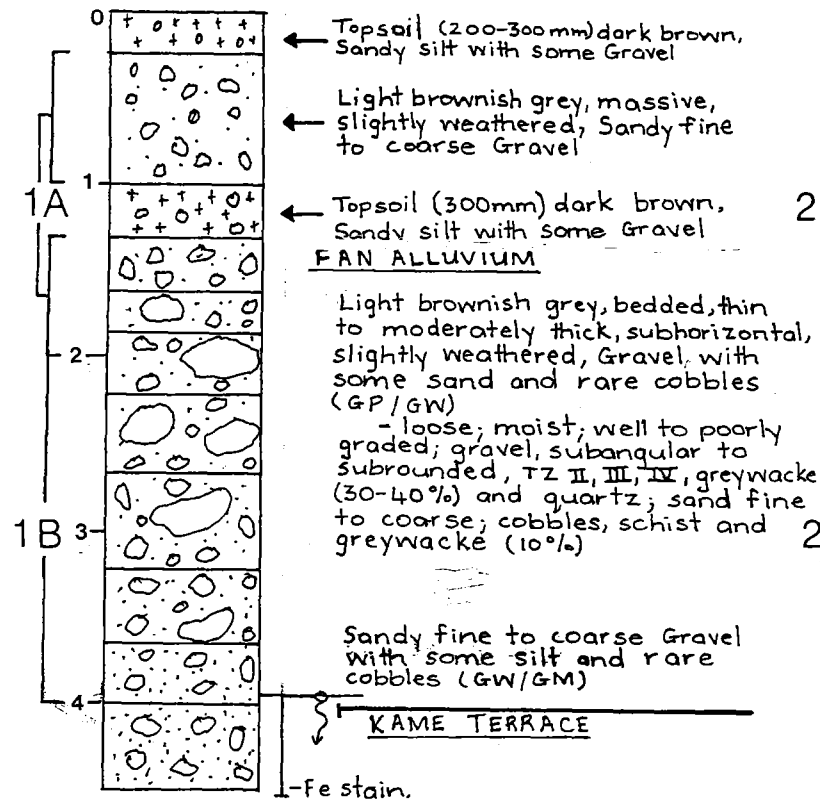 0
Topsoil (200-300mm) dark brown,
Sandy silt with some Gravel
Light brownish grey, massive,
slightly weathered, Sandy fine
to coarse Gravel
1
1A
Topsoil (300mm) dark brown,
2
Sandy silt with some Gravel
FAN ALLUVIUM
Light brownish grey, bedded, thin
to moderately thick, subhorizontal,
2
slightly weathered, Gravel, with
some sand and rare cobbles
(GP/GW)
- loose; moist; well to poorly
graded; gravel, subangular to
subrounded, TZ II, III, IV, greywacke
(30-40%) and quartz; sand fine
1B
3
to coarse; cobbles, schist and
2
greywacke (10%)
Sandy fine to coarse Gravel
with some silt and rare
cobbles (GW/GM)
4
KAME TERRACE
-Fe stain.